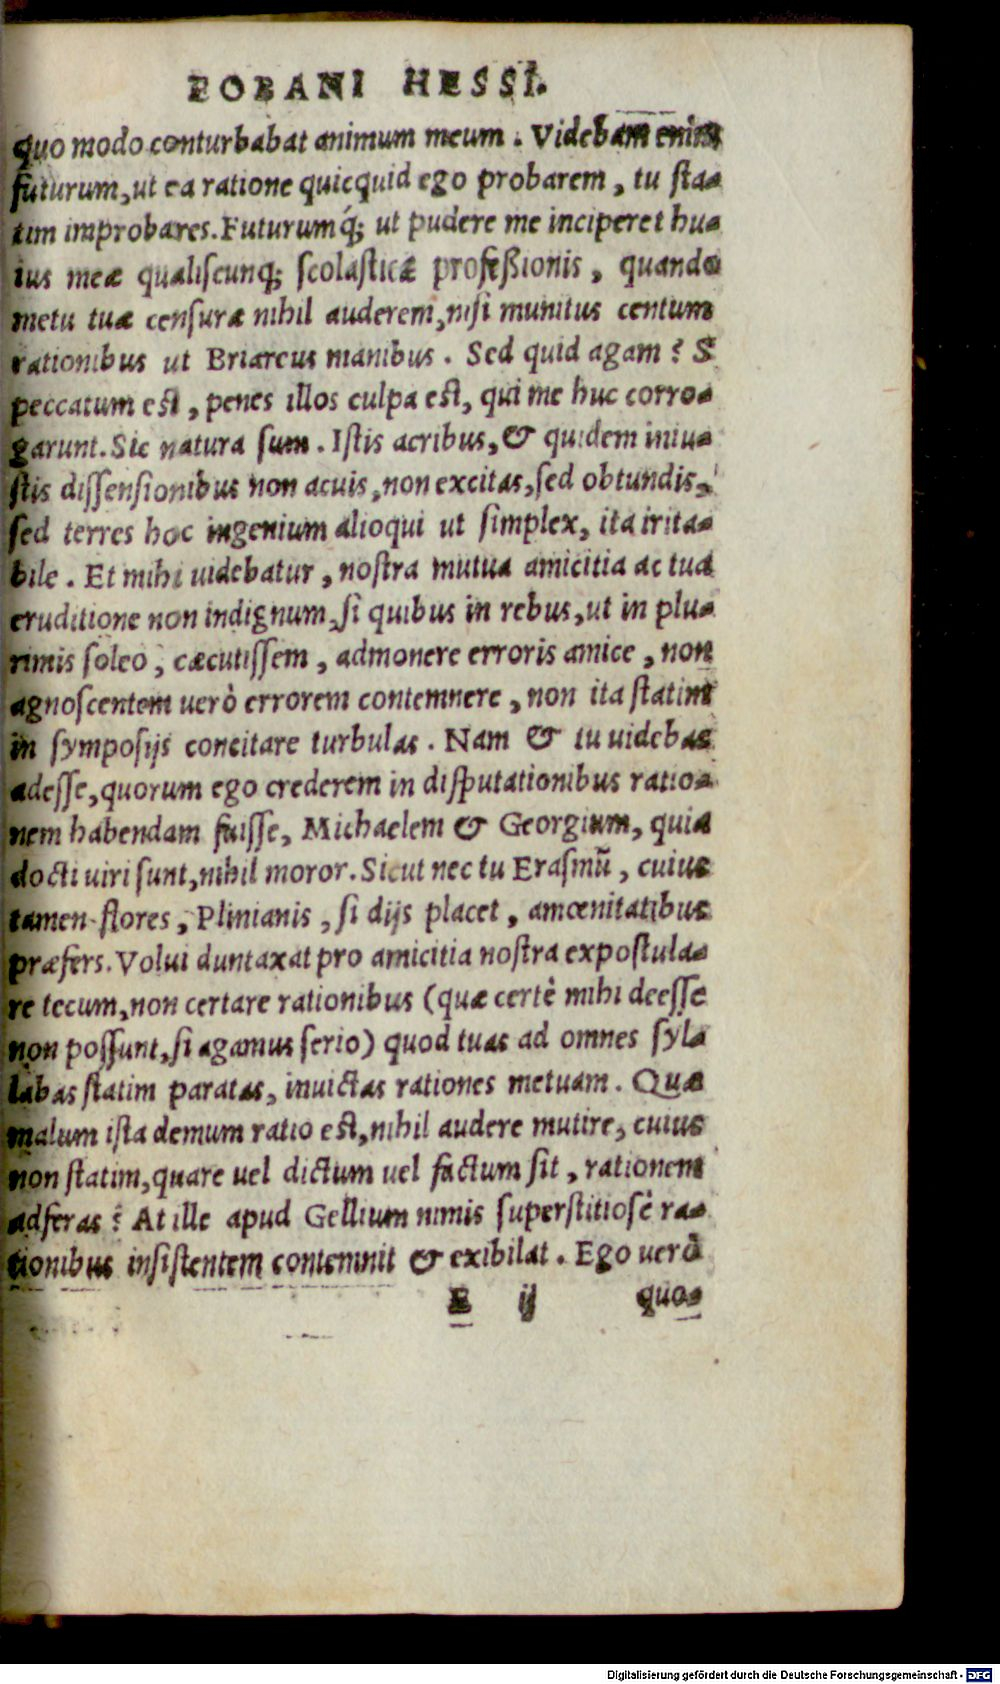 EOBANI HESSI.
quo modo conturbabat animum meum. Videbam enim
futurum, ut ea ratione quicquid ego probarem, tu sta-
tim improbares. Futurumq́; ut pudere me inciperet hu-
ius meæ qualiscunq; scolasticæ profeßionis, quando
metu tuæ censuræ nihil auderem, nisi munitus centum
rationibus ut Briareus manibus. Sed quid agam? S
peccatum est, penes illos culpa est, qui me huc corro-
garunt. Sic natura sum. Istis acribus, & quidem iniu-
stis dissensionibus non acuis, non excitas, sed obtundis,
sed terres hoc ingenium alioqui ut simplex, ita irita-
bile. Et mihi uidebatur, nostra mutua amicitia ac tua
eruditione non indignum, si quibus in rebus, ut in plu-
rimis soleo, cæcutissem, admonere erroris amice, non
agnoscentem uerò errorem contemnere, non ita statim
in symposijs concitare turbulas. Nam & tu uidebas
adesse, quorum ego crederem in disputationibus ratio-
nem habendam fuisse, Michaelem & Georgium, quia
docti uiri sunt, nihil moror. Sicut nec tu Erasmū, cuius
tamen flores, Plinianis, si dijs placet, amœnitatibus
præfers. Volui duntaxat pro amicitia nostra expostula-
re tecum, non certare rationibus (quæ certè mihi deesse
non possunt, si agamus serio) quod tuas ad omnes syla
labas statim paratas, inuictas rationes metuam. Quæ
malum ista demum ratio est, nihil audere mutire, cuius
non statim, quare uel dictum uel factum sit, rationem
adferas? At ille apud Gellium nimis superstitiosè ra-
tionibus insistentem contemnit & exibilat. Ego uerò
E ij quo-
Digitalisierung gefördert durch die Deutsche Forschungsgemeinschaft - DFG